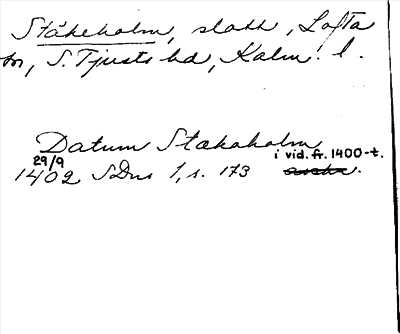 Stäkeholm, slott, Lofta
sn, S. Tjusts hd, Kalm. l.
Datum Stakaholm
29/9 i vid. fr. 1400-t.
1402 SDns 1, s. 173